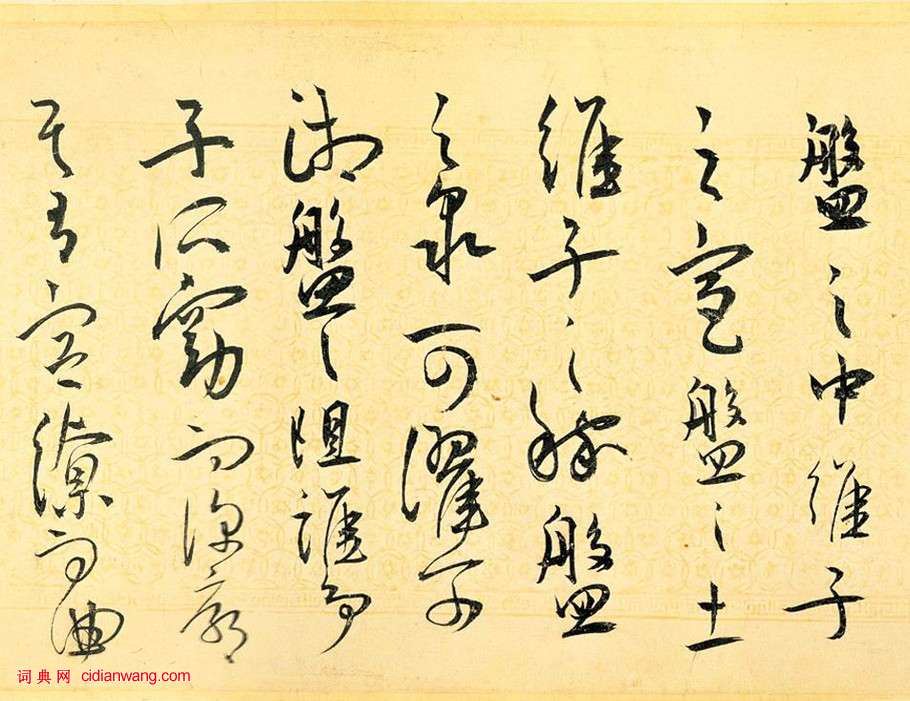 盤之中維子
之宮盤之土
維子之稼盤
之泉可濯可
湘盤之阻誰爭
子所窈而深廓
其有容繚而曲
词典网 cidianwang.com